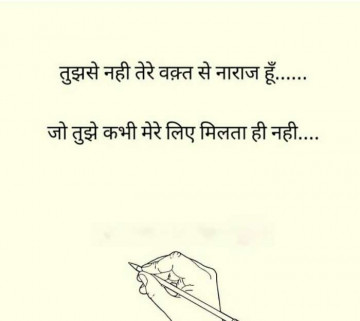 तुझसे नही तेरे वक़्त से नाराज हूँ......
जो तुझे कभी मेरे लिए मिलता ही नही....